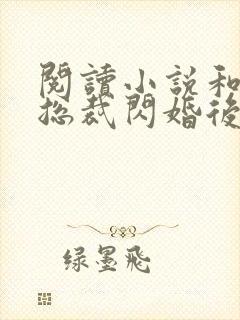 閱讀小說和
總裁閃婚後
绿墨飛